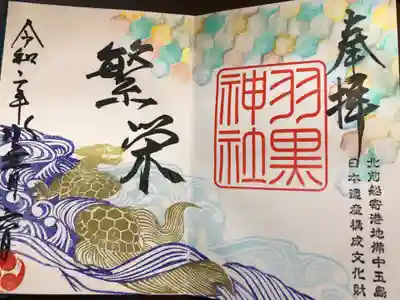 奉拝
北前船寄港地備中玉島
日本遺産構成文化財
羽黒
神社
繁栄
令和二年